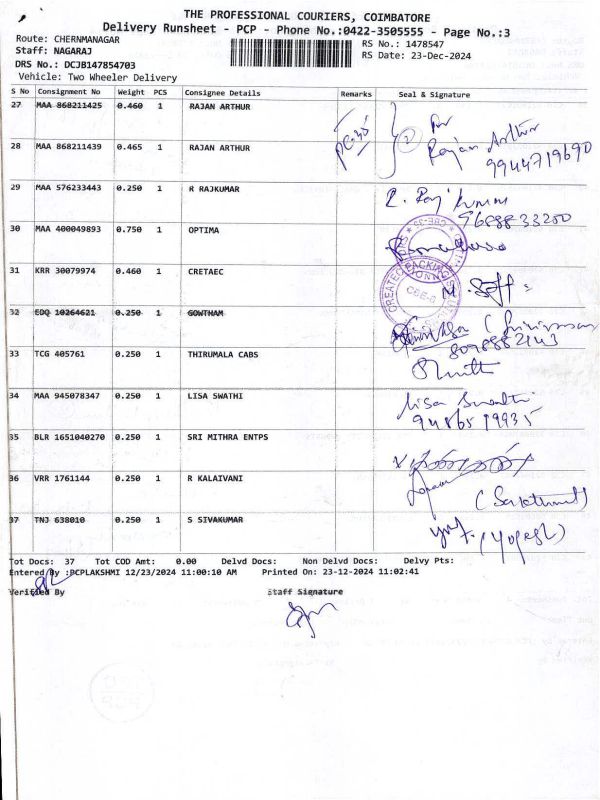 THE PROFESSIONAL COURIERS, COIMBATORE
Delivery Runsheet - PCP - Phone No.:0422-3505555 - Page No.:3
Route: CHERNMANAGAR RS No.: 1478547
Staff: NAGARAJ RS Date: 23-Dec-2024
DRS No.: DCJB147854703
Vehicle: Two Wheeler Delivery
S No Consignment No Weight PCS Consignee Details Remarks Seal & Signature
27 MAA 868211425 0.460 1 RAJAN ARTHUR
28 MAA 868211439 0.465 1 RAJAN ARTHUR Rajan Arthur
9944719690
29 MAA 576233443 0.250 1 R RAJKUMAR R. Raj kumar
9688833200
30 MAA 400049893 0.750 1 OPTIMA
31 KRR 30079974 0.460 1 CRETAEC
32 EDQ 10264621 0.250 1 GOWTHAM
8098882143
33 TCG 405761 0.250 1 THIRUMALA CABS
34 MAA 945078347 0.250 1 LISA SWATHI Lisa Swathi
9486519935
35 BLR 1651040270 0.250 1 SRI MITHRA ENTPS
36 VRR 1761144 0.250 1 R KALAIVANI
37 TNJ 638010 0.250 1 S SIVAKUMAR (Yogesh)
Tot Docs: 37 Tot COD Amt: 0.00 Delvd Docs: Non Delvd Docs: Delvy Pts:
Entered By :PCPLAKSHMI 12/23/2024 11:00:10 AM Printed On: 23-12-2024 11:02:41
Verified By Staff Signature